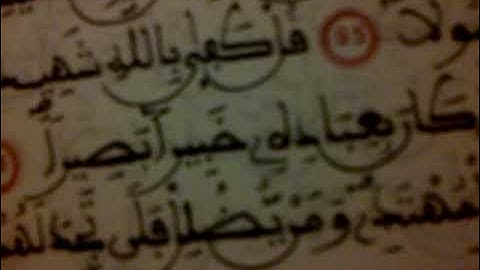 سُولاً 95 قُلْ كَفىٰ بِاللهِ شَهِيـ
كَانَ بِعِبَادِهِۦ خَبِيراً بَصِيراً
الْمُهْتَدِۦ وَمَنْ يُّضْلِلْ فَلَن تَجِدَ لَهُمُ